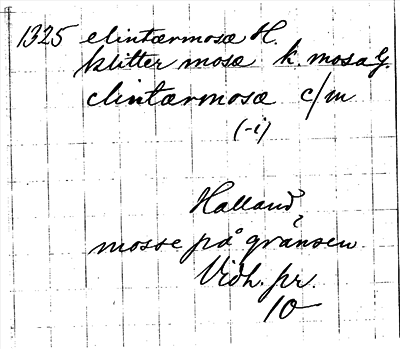 1325 elintærmosæ H.
klitter mosæ k. mosa G.
clintærmosæ c/m
(-i)
Halland,
mosse på gränsen
Vidh. pr.
10